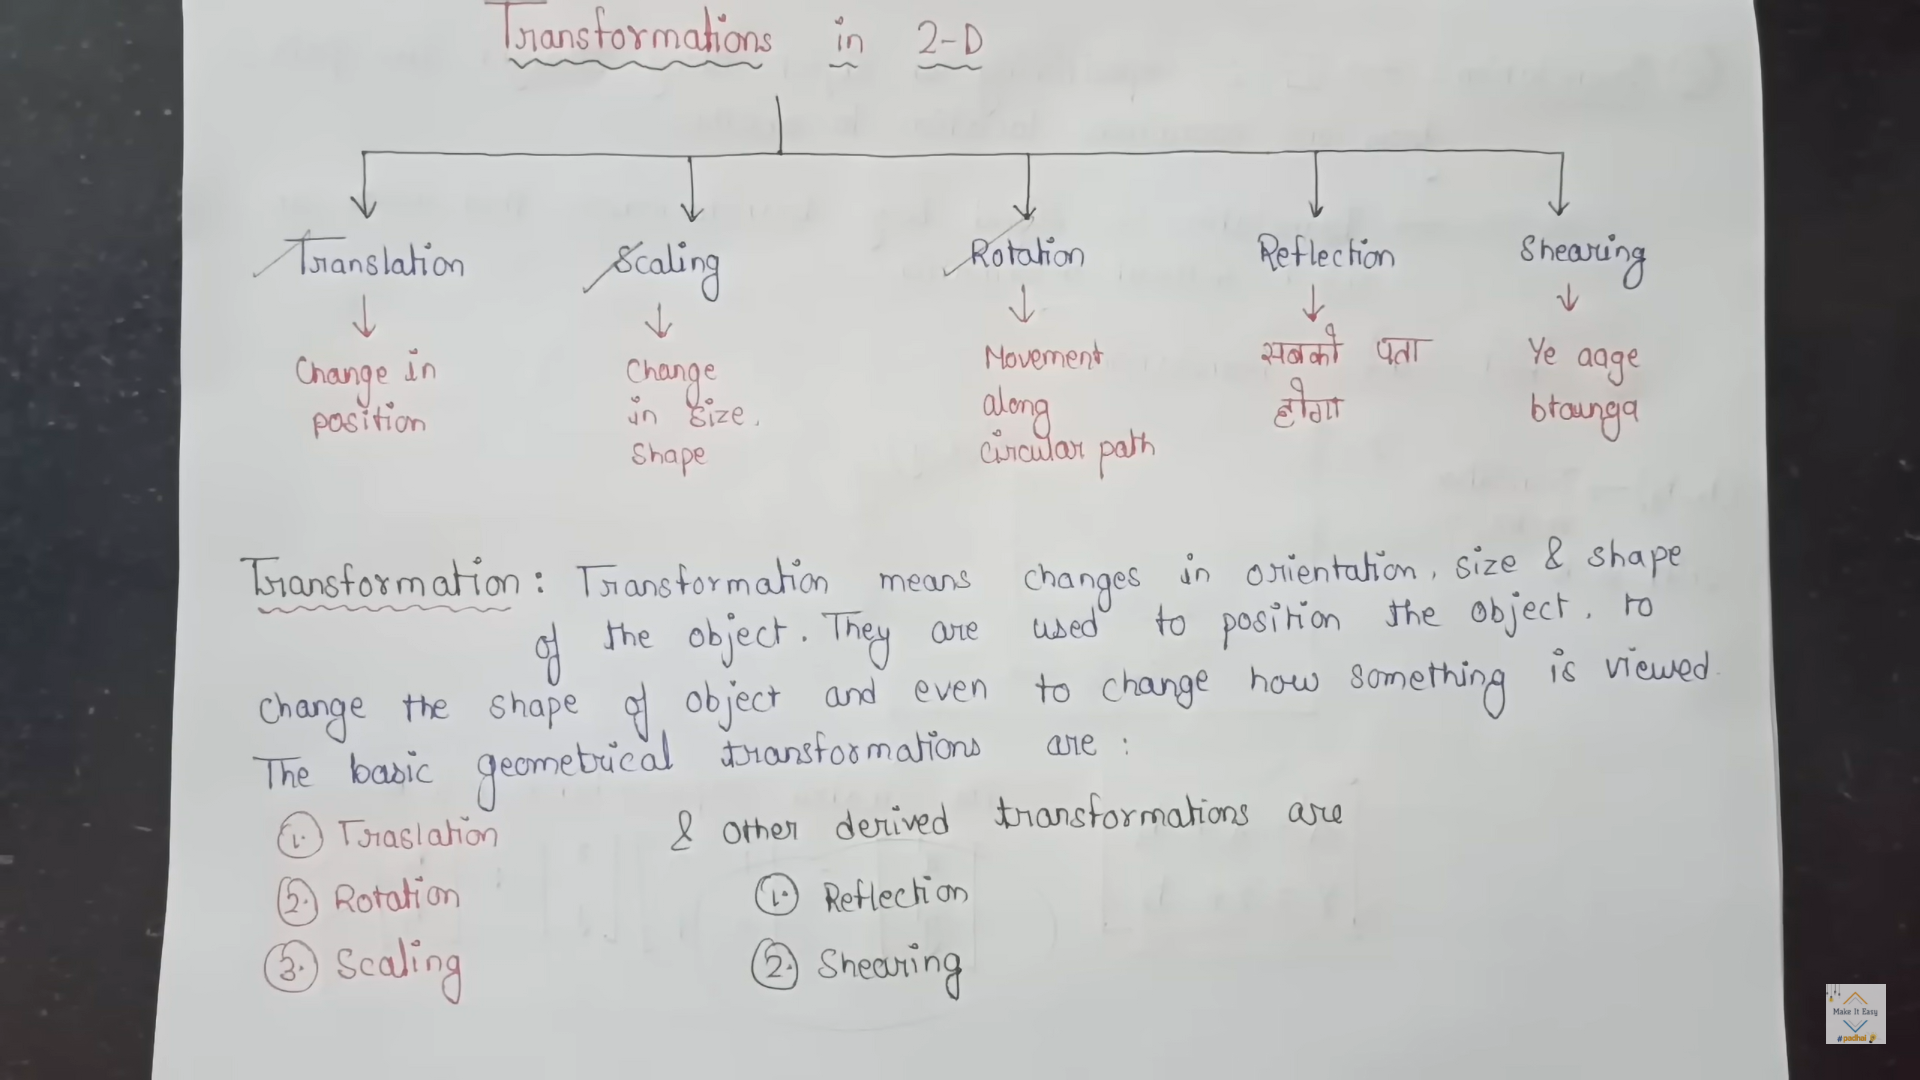 Transformations in 2-D
Translation Scaling Rotation Reflection Shearing
Change in position
Change in size, shape
Movement along circular path
सबको पता होगा
Ye aage btaunga
Transformation: Transformation means changes in orientation, size & shape
of the object. They are used to position the object, to
change the shape of object and even to change how something is viewed.
The basic geometrical transformations are :
1. Traslation
2. Rotation
3. Scaling
& other derived transformations are
1. Reflection
2. Shearing
Make It Easy
#padhai